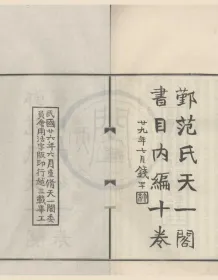 鄞范氏天一閣
書目內編十卷
廿九年六月錢罕
民國廿六年六月重脩天一閣委
員會用活字版印行越三載畢工